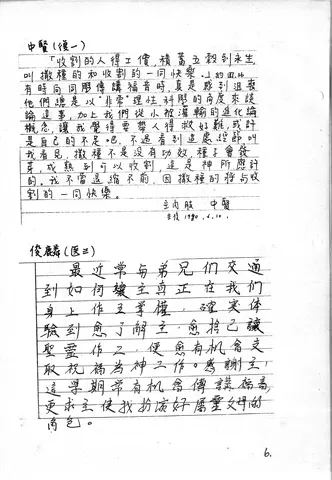 中賢(護一)
「收割的人得工價,積蓄五穀到永生,
叫撒種的和收割的一同快樂。」約四36
有時向同學傳講福音時,真是感到沮喪
他們總是以"非常"理性科學的角度來談
論這事,加上我們從小被灌輸的進化論
概念,讓我覺得要帶人得救好難,或許
是自己的不足吧。不過看到這處經節叫
我看見,撒種不是沒有功效,種子會發
芽,成熟到可以收割,這是神所應許
的,我不當退縮不前,因撒種的將與收
割的一同快樂。
主內肢 中賢
主後1990.6.10.
俊麟(医三)
最近常與弟兄们交通
到如何讓主真正在我们
身上作主掌權,確實体
驗到愈了解主,愈捨己讓
聖靈作工,便愈有機會交
取祝福為神工作。感謝主!
這學期常有機會傳講福音,
更求主使我扮演好屬靈父母的
角色。
6.